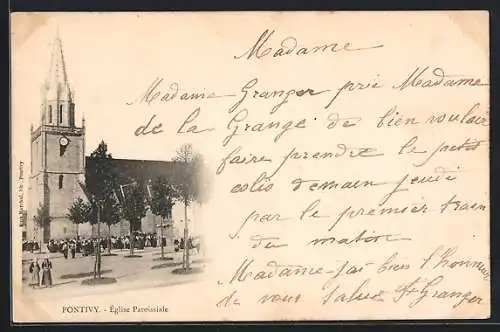 Madame
Madame Granger prie Madame
de la Grange de bien vouloir
faire prendre le petit
colis demain jeudi
par le premier train
du matin
Madame j'ai bien l'honneur
de vous saluer Granger
PONTIVY. - Église Paroissiale